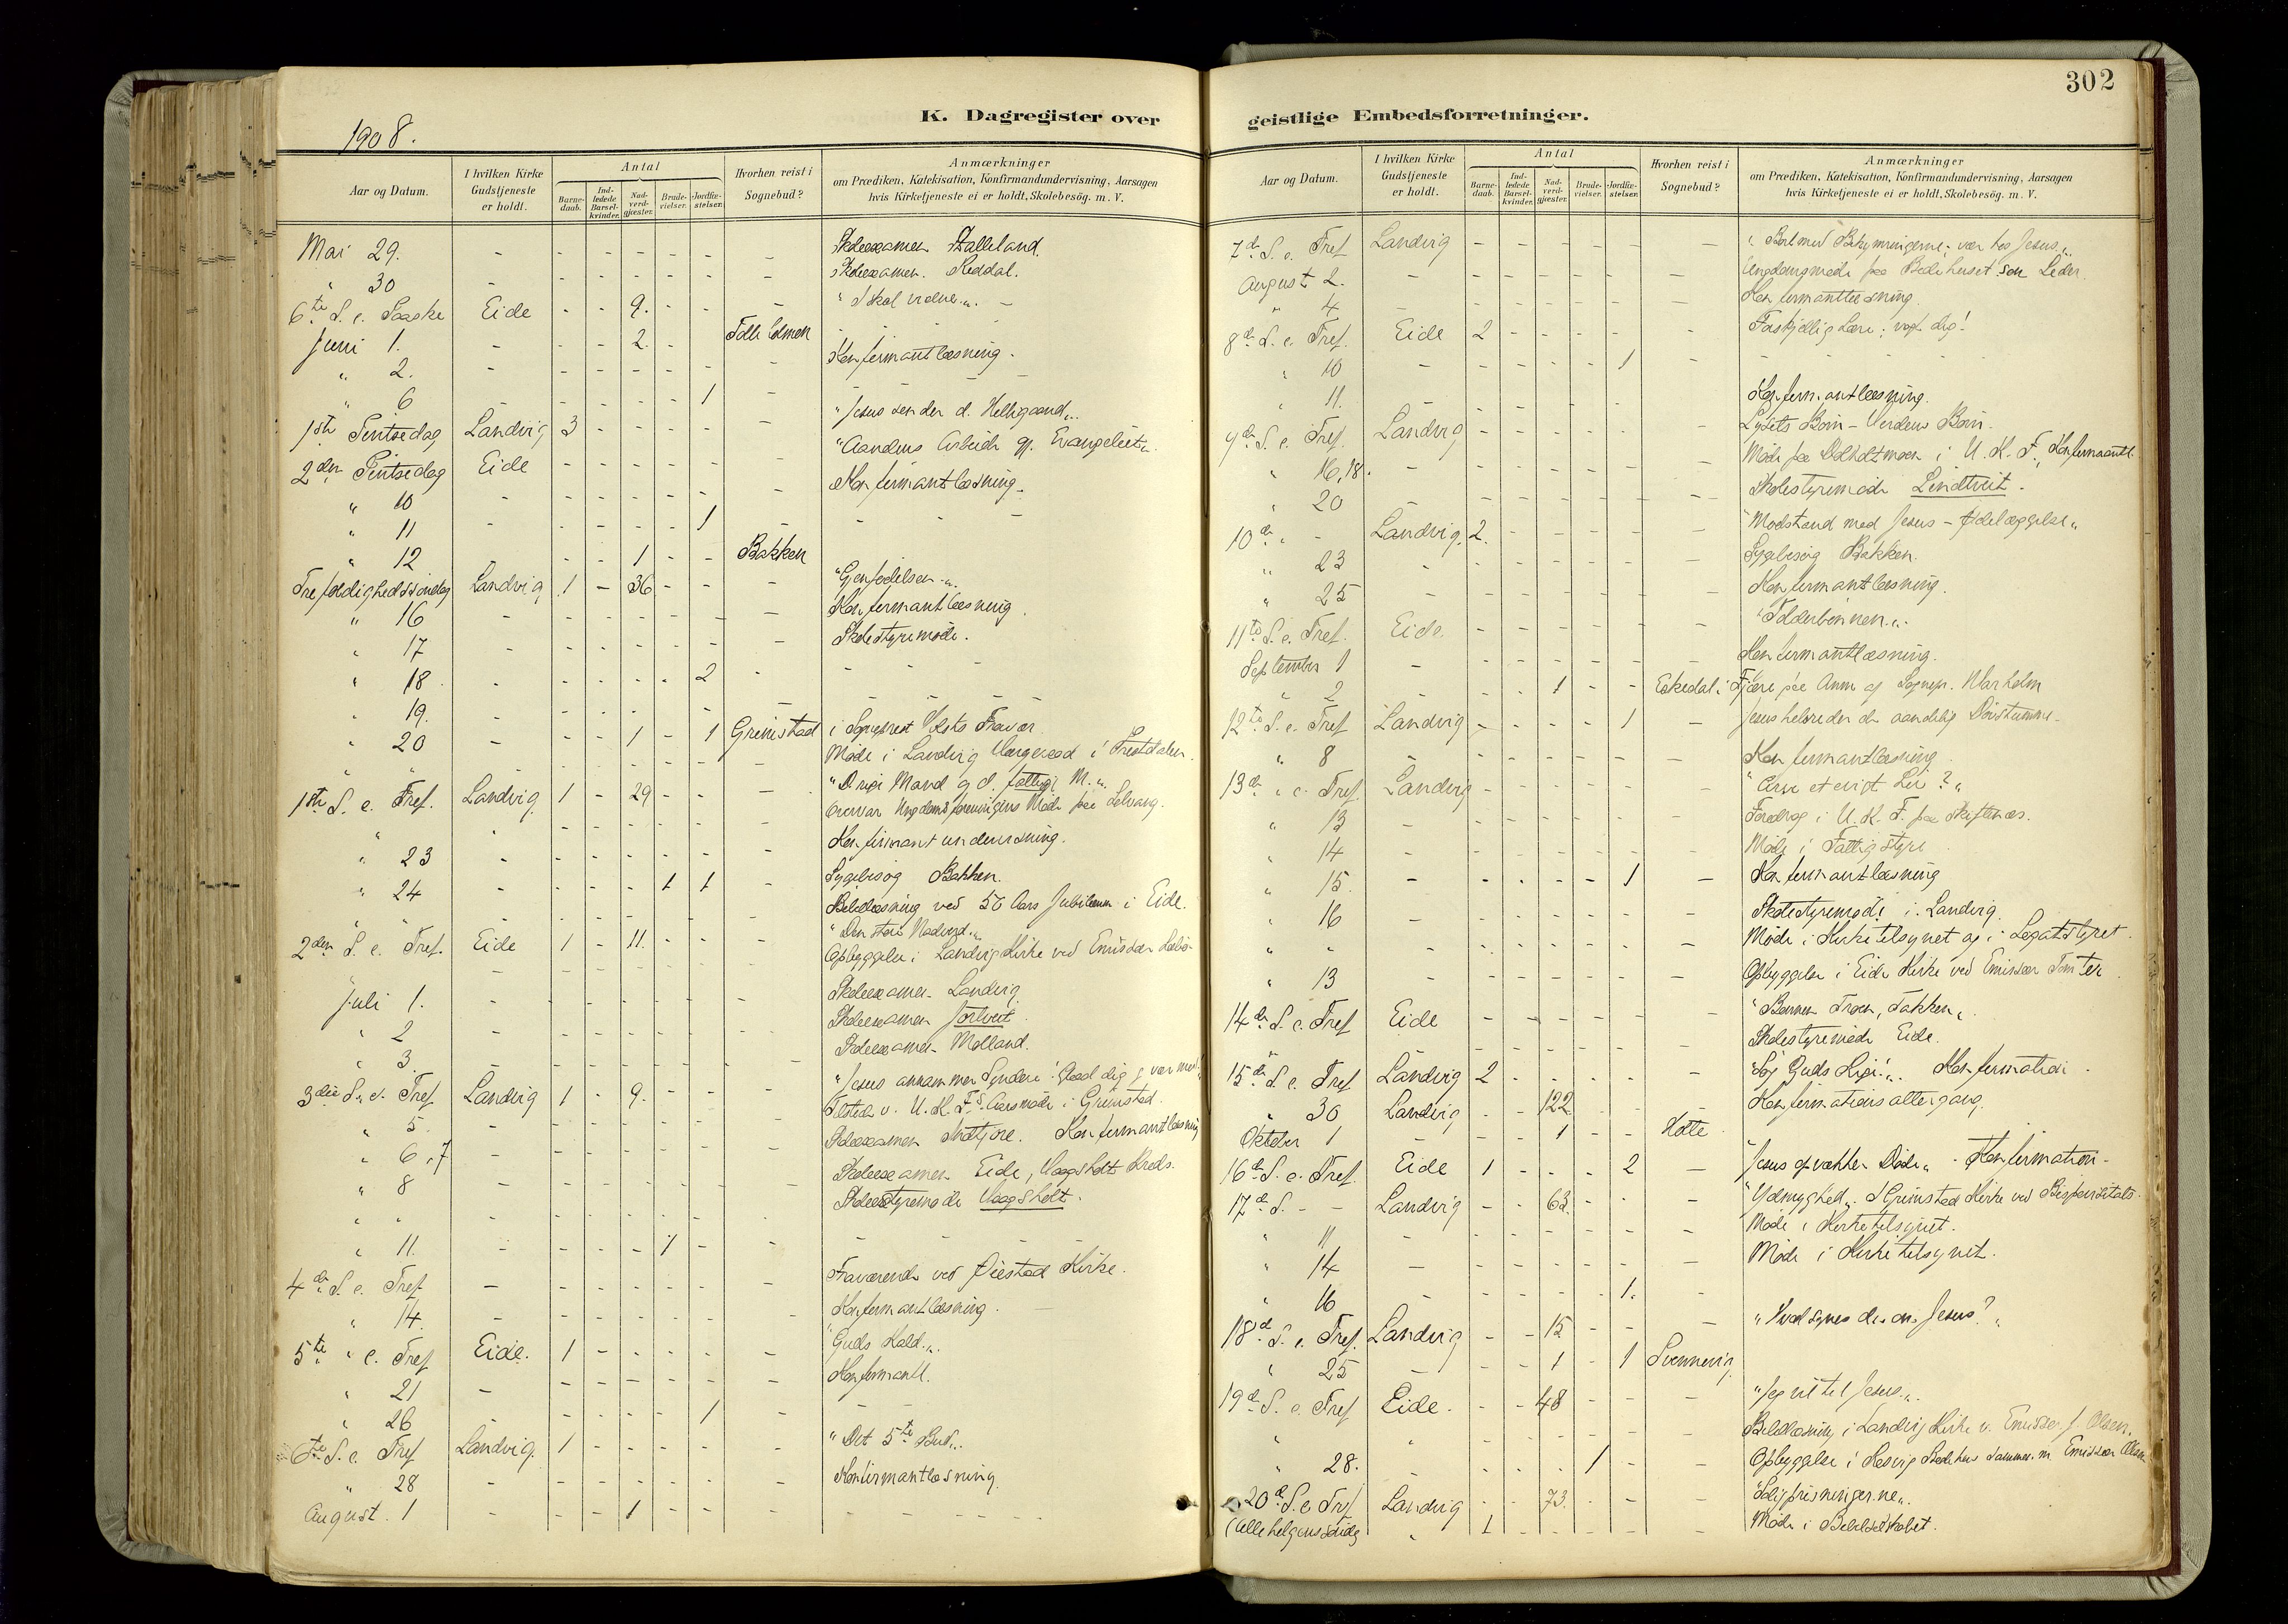 302
K. Dagregister over
geistlige Embedsforretninger.
1908.
Aar og Datum.
I hvilken Kirke Gudstjeneste er holdt.
Antal
Barne-daab.
Ind-ledede Barsel-kvinder.
Nad-verd-gjæster.
Brude-vielser.
Jordfæ-stelser.
Hvorhen reist i Sognebud?
Anmærkninger
om Prædiken, Katekisation, Konfirmandundervisning, Aarsagen
hvis Kirketjeneste ei er holdt, Skolebesög. m. V.
Mai 29. - - - - - - - Skoleexamen Stalleland.
" 30 - - - - - - - Skoleexamen. Reddal.
6te S. e. Paaske Eide - - 9. - - - "I skal vidne". -
Juni 1. - - - 2. - -
" 2. - - - - - - - Konfirmantlæsning.
" 6 - - - - - 1
1ste Pintsedag Landvig 3 - - - - - "Jesus sender d. Helligaand".
2den Pintsedag Eide - - - - - - "Aandens Arbeide gj. Evangeliet".
" 10 - - - - - - - Konfirmantlæsning.
" 11 - - - - - 1 - -
" 12 - - 1 - - Bakken
Trefoldighedssöndag Landvig 1 - 36 - - - "Gjenfödelsen".
" 16 - - - - - - - Konfirmantlæsning.
" 17 - - - - - - - Skolestyremöde.
" 18 - - - - - 2 - -
" 19. - - - - - -
" 20 - - - 1 - 1 Grimstad i Sogneprest Holsts Fravær.
" " - - - - - - Möde i Landvig Værgeraad i
1ste S. e. Tref. Landvig 1 - 29 - - - "D. rige Mand og d. fattige M.".
" " - - - - - - Ungdomsforenings Möde paa
" 23 - - - - - - - Konfirmantundervisning.
" 24 - - - - 1 1 - Sygebesög Bakken.
" " - - - - - - Bibellæsning ved 50 Aars Jubilæum i Eide.
2den S. e. Tref. Eide 1 - 11. - - - "Den store Nadverd".
- - - - - - Opbyggelse i Landvig Kirke ved Emissær
Juli 1. - - - - - - - Skoleexamen Landvig
" 2 - - - - - - - Skoleexamen
" 3. - - - - - - - Skoleexamen Molland.
3die S. e. Tref Landvig 1 - 9. - - - "Jesus annammer Syndere! Glæd dig
" 5 - - - - - - - Tilstede v. U. K. F's. Aarsmöde i Grimstad.
" 6, 7 - - - - - - - Skoleexamen Konfirmantlæsning
" 8 - - - - - - - Skoleexamen Eide, Vaagsholt Kreds.
" " - - - - - - - Skolestyremöde Vaagsholt.
" 11. - - - - 1 - - -
4de S. e. Tref - - - - - - - Fraværende ved Öiestad Kirke.
" 14. - - - - - - - Konfirmantlæsning.
5te " e. Tref Eide. 1 - - - - - "Guds Kald".
" 21 - - - - - - - Konfirmantl.
" 26 - - - - - 1 - -
6te S. e. Tref Landvig. 1 - - - - - "Det 5te Bud".
" 28 - - - - - - - Konfirmantlæsning.
August. 1 - - - 1 - - - -
Aar og Datum.
I hvilken Kirke Gudstjeneste er holdt.
Antal
Barne-daab.
Ind-ledede Barsel-kvinder.
Nad-verd-gjæster.
Brude-vielser.
Jordfæ-stelser.
Hvorhen reist i Sognebud?
Anmærkninger
om Prædiken, Katekisation, Konfirmandundervisning, Aarsagen
hvis Kirketjeneste ei er holdt, Skolebesög. m. V.
7de S. e. Tref Landvig - - - - - - "Bort med Bekymringerne; vær hos Jesus".
August 2. - - - - - - - Ungdomsmöde paa Bedehuset som Leder.
" 4 - - - - - - - Konfirmantlæsning.
8de S. e. Tref. Eide 2 - - - - - Forskjellig Lære; vogt dig!
" 10 - - - - - 1 - -
" 11. - - - - - - Konfirmantlæsning.
9de S. e. Tref. Landvig - - - - - - Lysets Börn - Verdens Börn.
" 16, 18. - - - - - - - Möde paa i U. K. F., Konfirmantl.
" 20 - - - - - - - Skolestyremöde Lindtveit.
10de " - Landvig. 2. - - - - - "Modstand mod Jesus - Ödelæggelse"
" 23 - - - - - - - Sygebesög Bakken.
" 25 - - - - - - - Konfirmantlæsning.
11te S. e. Tref. Eide. - - - - - - "Tolderbönnen".
September 1 - - - - - - - Konfirmantlæsning.
" 2 - - - 1 - - Eskedal i Fjære paa Anm. af Sognepr.
12te S. e. Tref Landvig - - - - 1 - Jesus helbreder den aandelig Dövstumme.
" 8 - - - - - - Konfirmantlæsning.
13de " e. Tref. Landvig - - - - - - "Arve et evigt Liv?"
" 13 - - - - - - - Foredrag i U. K. F. paa Skiftenæs.
" 14 - - - - - - - Möde i Fattigstyre
" 15. - - - - - 1 - Konfirmantlæsning
" 16 - - - - - - - Skolestyremöde i Landvig.
" " - - - - - - Möde i Kirketilsynet og i Legatstyret.
" 13 - - - - - - - Opbyggelse i Eide Kirke ved Emissær
14de S. e. Tref Eide - - - - - - "Bönnen Troen, Takken".
" - - - - - - Skolestyremöde Eide.
15de S. e. Tref Landvig 2 - - - - - "Sög Guds Rige!". Konfirmation.
" 30 Landvig - - 122 - - Konfirmationsaltergang.
Oktober 1 - - - 1 - -
16de S. e. Tref. Eide 1 - - - 2 - Jesus opvækker Döde". - Konfirmation -
17de S. - - Landvig - - 63. - - - "Ydmyghed". I Grimstad Kirke ved
" 11 - - - - - - - Möde i Kirketilsynet.
" 14 - - - - - - - Möde i Kirketilsynet.
" 16 - - - - - 1.
18de S. e. Tref. Landvig - - 15 - - - "Hvad synes dig om Jesus?"
" 25 - - - 1 - 1 Svennevig
19de S. e. Tref Eide. - - 48 - - - "Jeg vil til Jesus".
" " Bibellæsning i Landvig Kirke v. Emissær J. Olsen.
" 28. - - - - 1 - - Opbyggelse i Bedehus sammen m. Emissær Olsen
20de S. e Tref Landvig - - 73. - - - "Saligprisningerne".
(Allehelgenssöndg " 1 - - - - Möde i Bibelselskabet.